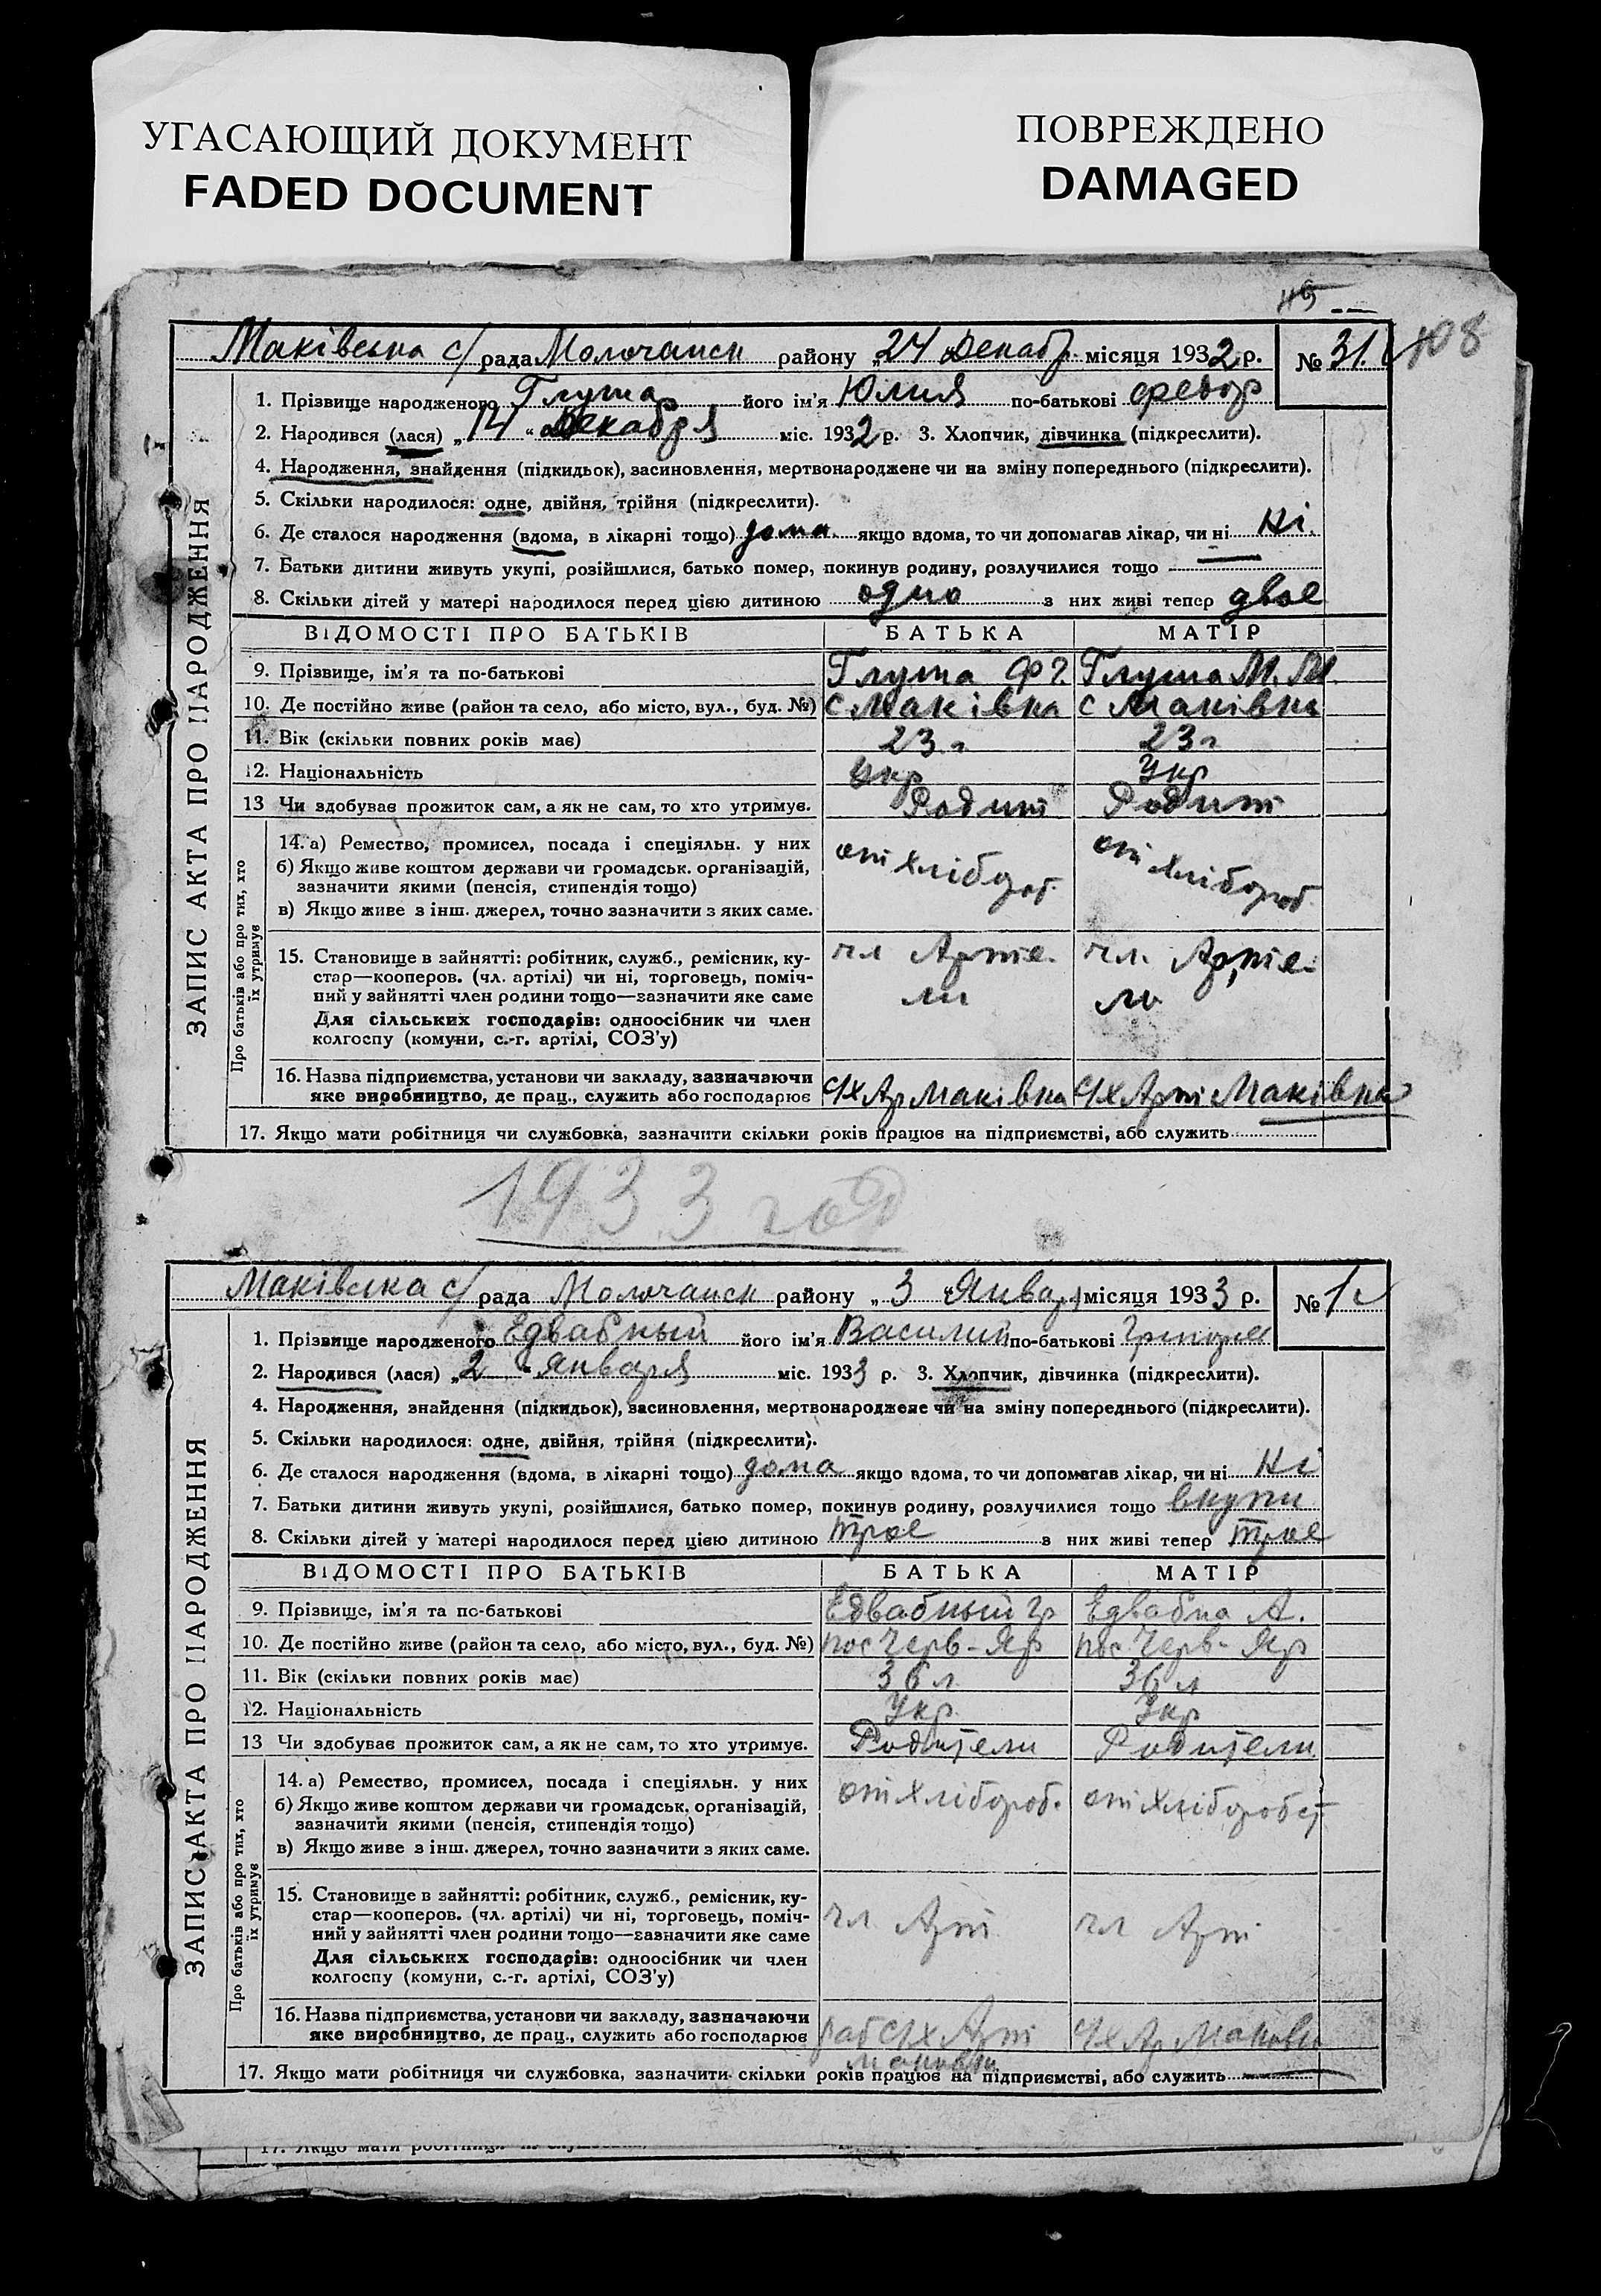 УГАСАЮЩИЙ ДОКУМЕНТ
FADED DOCUMENT
ПОВРЕЖДЕНО
DAMAGED
108
ЗАПИС АКТА ПРО НАРОДЖЕННЯ
Маківська с/ рада Молочанск району „24 Декабр. місяця 1932 р. № 31.
1. Прізвище народженого Глуша його ім'я Юлия по-батькові Федор
2. Народився (лася) „14 “ Декабря міс. 1932 р. 3. Хлопчик, дівчинка (підкреслити).
4. Народження, знайдення (підкидьок), засиновлення, мертвонароджене чи на зміну попереднього (підкреслити).
5. Скільки народилося: одне, двійня, трійня (підкреслити).
6. Де сталося народження (вдома, в лікарні тощо) дома якщо вдома, то чи допомагав лікар, чи ні Ні.
7. Батьки дитини живуть укупі, розійшлися, батько помер, покинув родину, розлучилися тощо
8. Скільки дітей у матері народилося перед цією дитиною одно з них живі тепер двое
ВІДОМОСТІ ПРО БАТЬКІВ БАТЬКА МАТІР
9. Прізвище, ім'я та по-батькові Глуша Ф Г. Глуша М. М.
10. Де постійно живе (район та село, або місто, вул., буд. №) с Маківка с Маківка
11. Вік (скільки повних років має) 23 г 23 г
12. Національність Укр Укр
13 Чи здобуває прожиток сам, а як не сам, то хто утримує. Родит Родит
Про батьків або про тих, хто їх утримує
14. а) Ремество, промисел, посада і спеціяльн. у них
б) Якщо живе коштом держави чи громадськ. організацій,
зазначити якими (пенсія, стипендія тощо)
в) Якщо живе з інш. джерел, точно зазначити з яких саме.
от хлібороб. от хлібороб.
15. Становище в зайнятті: робітник, служб., ремісник, ку-
стар—кооперов. (чл. артілі) чи ні, торговець, поміч-
ний у зайнятті член родини тощо—зазначити яке саме
Для сільських господарів: одноосібник чи член
колгоспу (комуни, с.-г. артілі, СОЗ'у)
чл Арте-
ли
чл. Арте-
ли
16. Назва підприємства, установи чи закладу, зазначаючи
яке виробництво, де прац., служить або господарює С/х Ар Маківка С/х Арт Маківка
17. Якщо мати робітниця чи службовка, зазначити скільки років працює на підприємстві, або служить
1933 год
ЗАПИС АКТА ПРО НАРОДЖЕННЯ
Маківська с/ рада Молочанск району „ 3 Январ місяця 1933 р. № 1
1. Прізвище народженого Едвабный його ім'я Василий по-батькові Григоров
2. Народився (лася) „2 “ Января міс. 1933 р. 3. Хлопчик, дівчинка (підкреслити).
4. Народження, знайдення (підкидьок), засиновлення, мертвонароджене чи на зміну попереднього (підкреслити).
5. Скільки народилося: одне, двійня, трійня (підкреслити).
6. Де сталося народження (вдома, в лікарні тощо) дома якщо вдома, то чи допомагав лікар, чи ні Ні
7. Батьки дитини живуть укупі, розійшлися, батько помер, покинув родину, розлучилися тощо вкупи
8. Скільки дітей у матері народилося перед цією дитиною трое з них живі тепер трое
ВІДОМОСТІ ПРО БАТЬКІВ БАТЬКА МАТІР
9. Прізвище, ім'я та по-батькові Едвабный Гр Едвабна А.
10. Де постійно живе (район та село, або місто, вул., буд. №) пос Черв-Яр пос Черв-Яр
11. Вік (скільки повних років має) 36 л 36 л
12. Національність Укр. Укр
13 Чи здобуває прожиток сам, а як не сам, то хто утримує. Родители Родители
Про батьків або про тих, хто їх утримує
14. а) Ремество, промисел, посада і спеціяльн. у них
б) Якщо живе коштом держави чи громадськ. організацій,
зазначити якими (пенсія, стипендія тощо)
в) Якщо живе з інш. джерел, точно зазначити з яких саме.
от хлібороб. от хліборобст
15. Становище в зайнятті: робітник, служб., ремісник, ку-
стар—кооперов. (чл. артілі) чи ні, торговець, поміч-
ний у зайнятті член родини тощо—зазначити яке саме
Для сільських господарів: одноосібник чи член
колгоспу (комуни, с.-г. артілі, СОЗ'у)
чл Арт чл Арт
16. Назва підприємства, установи чи закладу, зазначаючи
яке виробництво, де прац., служить або господарює раб С/х Арт С/х Ар Маковк
17. Якщо мати робітниця чи службовка, зазначити скільки років працює на підприємстві, або служить